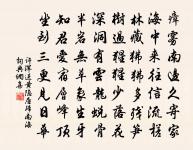 瘴雾南边久寄家
海中来往信流槎
林藏狒狒多残笋
树过猩猩少落花
深洞有云龙蜕骨
半岩无草象生牙
知君爱宿层峰顶
坐到三更见日华
许浑送黄隐居归南海
词典网集